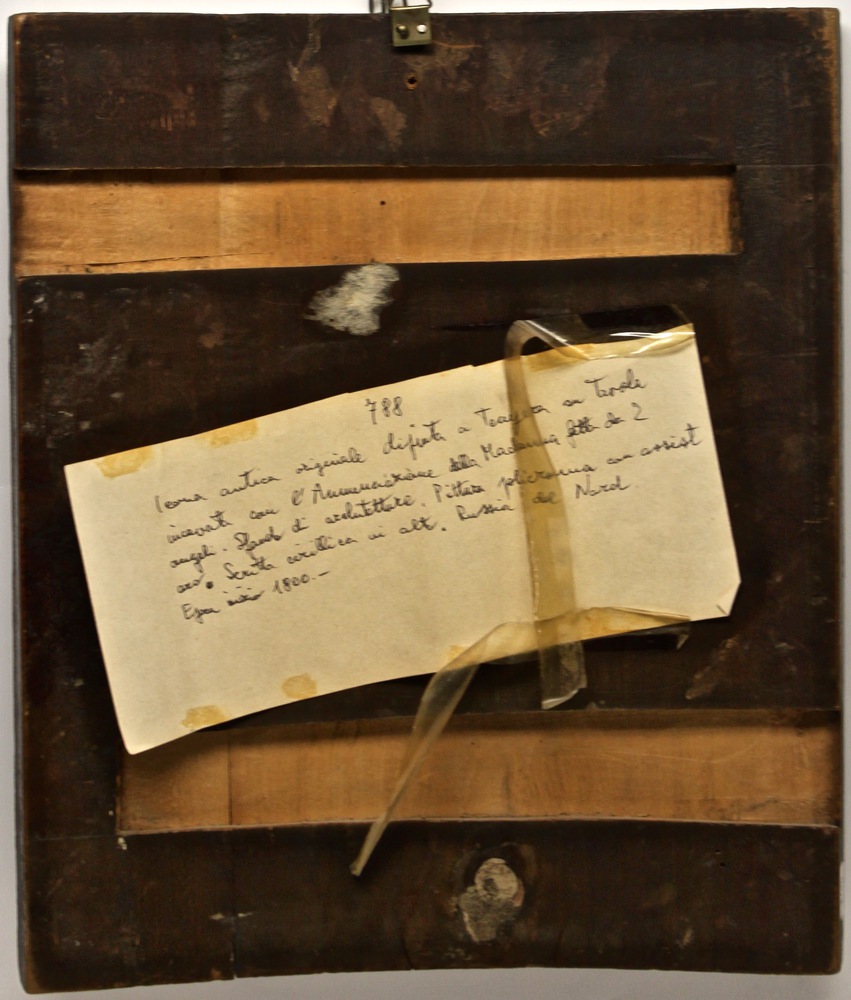 788
Icona antica originale dipinta a Tempera su Tavola
incavata con l'Annunciazione della Madonna fatta da 2
angeli. Sfondo di architetture. Pittura policroma con assist
oro. Scritta cirillica in alt. Russia del Nord.
Epoca inizio 1800.-